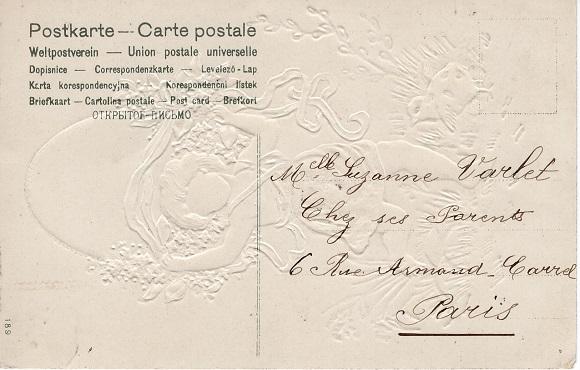 Postkarte — Carte postale
Weltpostverein — Union postale universelle
Dopisnice — Correspondenzkarte — Levelező-Lap
Karta korespondencyjna — Korespondenční lístek
Briefkaart — Cartolina postale — Post card — Brefkort
ОТКРЫТОЕ ПИСЬМО
Melle Suzanne Varlet
Chez ses Parents
6 Rue Armand-Carrel
Paris
189